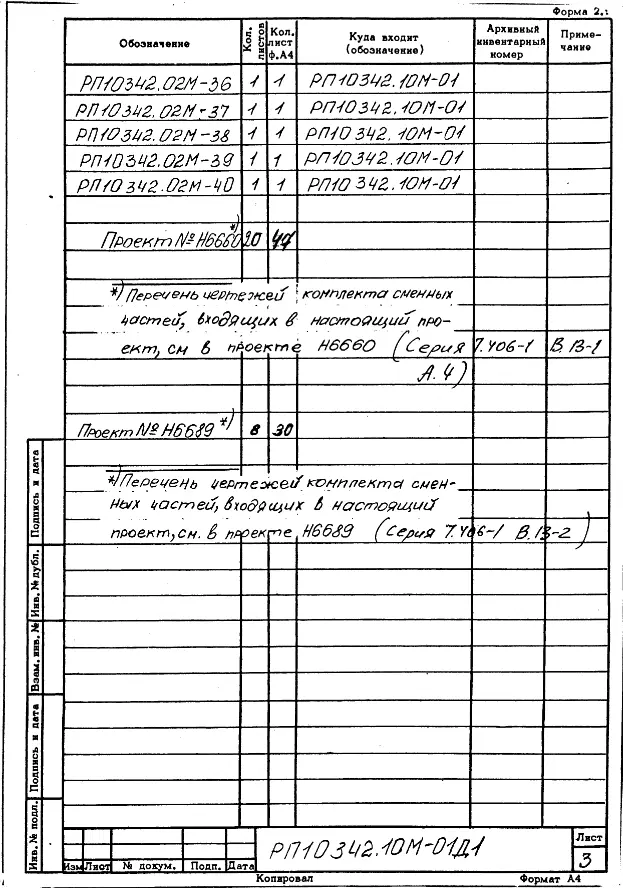 Форма 2.
Обозначение Кол. листов Кол. лист ф.А4 Куда входит (обозначение) Архивный инвентарный номер Приме-чание
РП10342.02М-36 1 1 РП10342.10М-01
РП10342.02М-37 1 1 РП10342.10М-01
РП10342.02М-38 1 1 РП10342.10М-01
РП10342.02М-39 1 1 РП10342.10М-01
РП10342.02М-40 1 1 РП10342.10М-01
Проект №Н6660*) 20
*) Перечень чертежей комплекта сменных
частей, входящих в настоящий про-
ект, см в проекте Н6660 (Серия 7.406-1 В.13-1
А.4)
Проект №Н6689*) 8 30
*) Перечень чертежей комплекта смен-
ных частей, входящих в настоящий
проект, см. в проекте Н6689 (Серия 7.406-1 В.13-2)
Подпись и дата
Инв. № дубл.
Взам. инв. №
Подпись и дата
Инв. № подл.
Изм Лист № докум. Подп. Дата
РП10342.10М-01Д1
Лист
3
Копировал Формат А4